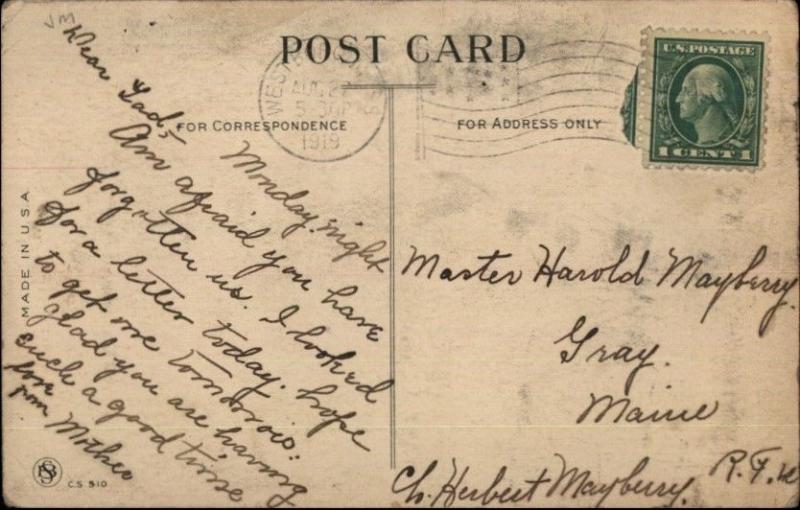 POST CARD
FOR CORRESPONDENCE
FOR ADDRESS ONLY
WEST
AUG 2
5-30 P
1919
U.S. POSTAGE
1 CENT 1
MADE IN U S A
Monday night
Dear Lad,
Am afraid you have
forgotten us. I looked
for a letter today. hope
to get one tomorrow.
glad you are having
such a good time
love
from Mother
Master Harold Mayberry.
Gray.
Maine
Ch. Herbert Mayberry.
R. F.
C.S. 510